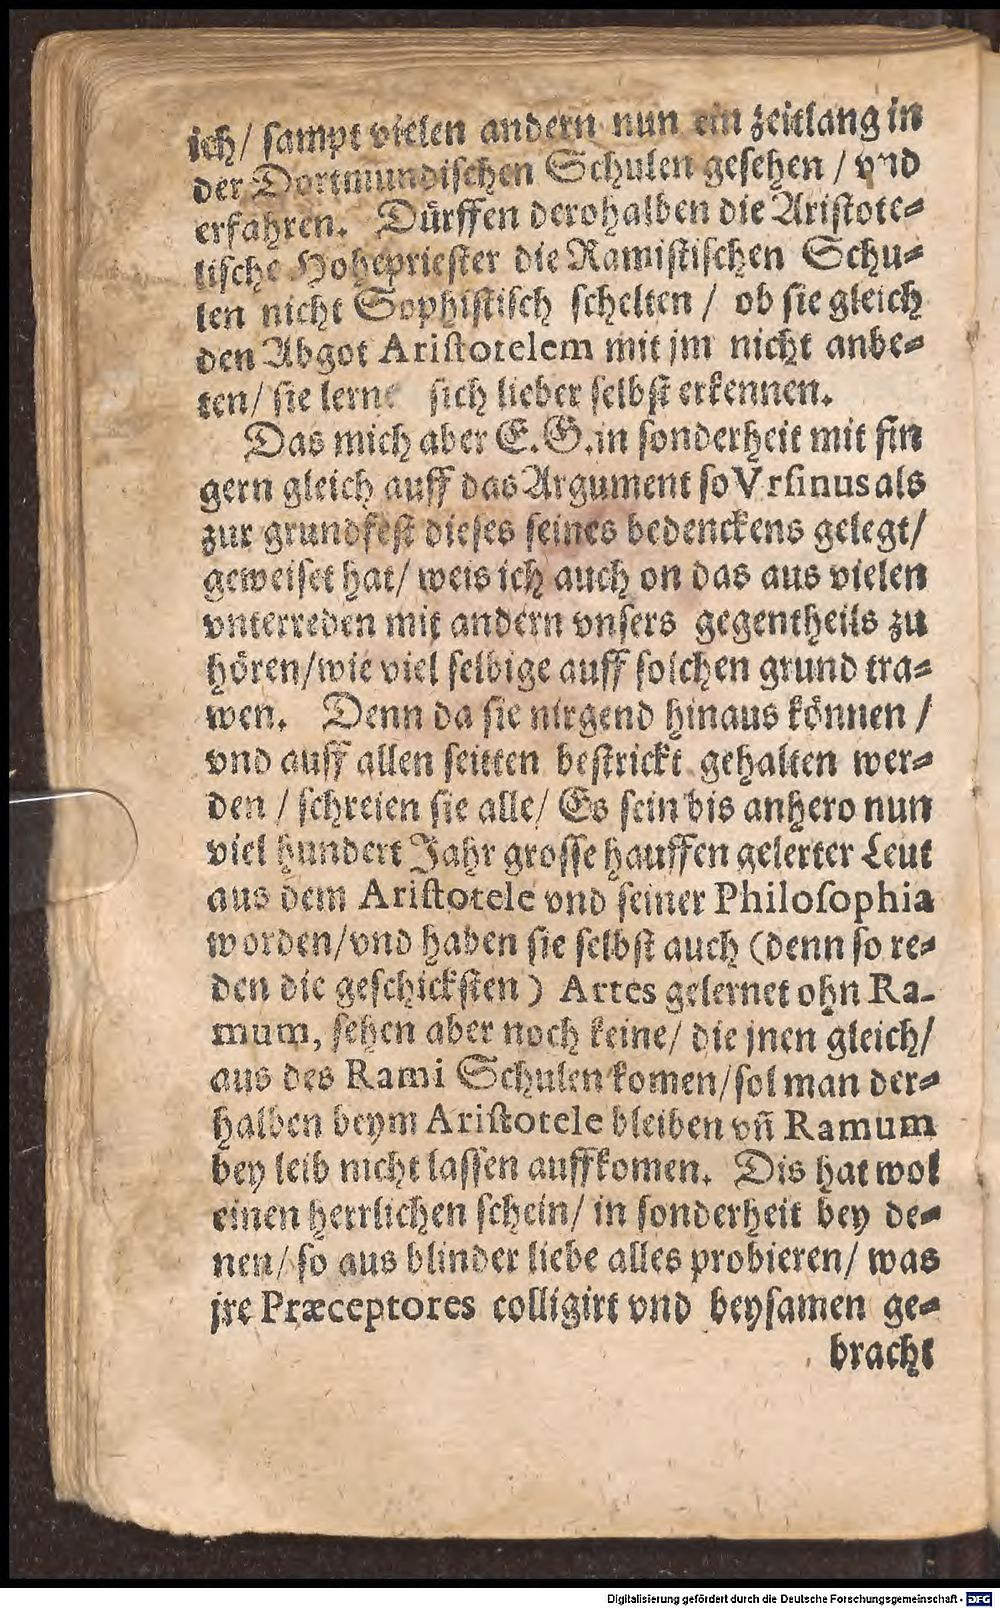 ich/ sampt vielen andern nun ein zeitlang in
der Dortmundischen Schulen gesehen / vnd
erfahren. Dürffen derohalben die Aristote=
lische Hohepriester die Ramistischen Schu=
len nicht Sophistisch schelten / ob sie gleich
den Abgot Aristotelem mit jm nicht anbe=
ten/ sie lerne sich lieber selbst erkennen.
Das mich aber E. G. in sonderheit mit fin
gern gleich auff das Argument so Vrsinus als
zur grundfest dieses seines bedenckens gelegt/
geweiset hat/ weis ich auch on das aus vielen
vnterreden mit andern vnsers gegentheils zu
hören/wie viel selbige auff solchen grund tra=
wen. Denn da sie nirgend hinaus können /
vnd auff allen seitten bestrickt gehalten wer=
den / schreien sie alle/ Es sein bis anhero nun
viel hundert Jahr grosse hauffen gelerter Leut
aus dem Aristotele vnd seiner Philosophia
worden/vnd haben sie selbst auch (denn so re=
den die geschicksten) Artes gelernet ohn Ra-
mum, sehen aber noch keine/ die jnen gleich/
aus des Rami Schulen komen/sol man der=
halben beym Aristotele bleiben vñ Ramum
bey leib nicht lassen auffkomen. Dis hat wol
einen herrlichen schein/ in sonderheit bey de=
nen/ so aus blinder liebe alles probieren/ was
jre Præceptores colligirt vnd beysamen ge=
bracht
Digitalisierung gefördert durch die Deutsche Forschungsgemeinschaft - DFG